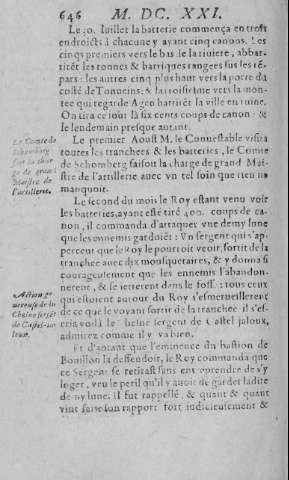 646 M. DC. XXI.
Le 30. Iuillet la batterie commença en trois
endroicts à chacune y ayant cinq canons. Les
cinq premiers vers le bas de la riuiere, abbat-
tirēt les tonnes & barriques rangees sus les rē-
pars: les autres cinq plus haut vers la porte du
costé de Tonneins; & la troisiesme vers la mon-
tee qui regarde Agen battirēt la ville en ruine.
On tira ce iour là six cents coups de canon: &
le lendemain presque autant.
Le premier Aoust M. le Connestable visita
toutes les tranchees & les batteries, le Comte
de Schomberg faisoit la charge de grand Mai-
stre de l'artillerie auec vn tel soin que rien ne
manquoit.
Le Comte de
Schomberg
fait la char
ge de grand
Maistre de
l'artillerie.
Le second du mois le Roy estant venu voir
les batteries, ayant esté tiré 400. coups de ca-
non, il commanda d'attaquer vne demy lune
que les ennemis gardoiēt: Vn sergent qui s'ap-
perceut que le Roy le pourroit veoir, sortit de la
tranchee auec dix mousquetaires, & y donna si
courageusement que les ennemis l'abandon-
nerent, & se ietterent dans le fossé: tous ceux
qui estoient autour du Roy s'esmerueillerent
de ce que le voyant sortir de la tranchee il s'es-
cria voilà le sergent de Castel jaloux,
admirez comme il y va bien.
Action ge
nereuse de la
Chesne sergēt
de Castel-ia-
loux.
Et d'autant que l'eminence du bastion de
Boüillon la deffendoit, le Roy commanda que
ce Sergent se retirast sans entreprendre de s'y
loger, veu le peril qu'il y auoit de garder ladite
demy lune; il fut rappellé, & quant & quant
vint faire son rapport fort iudicieusement &